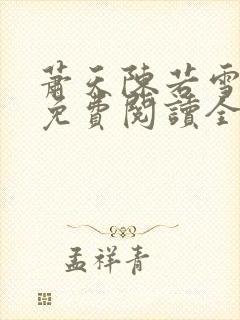 蕭天陳若雪
免費閱讀全
孟祥青